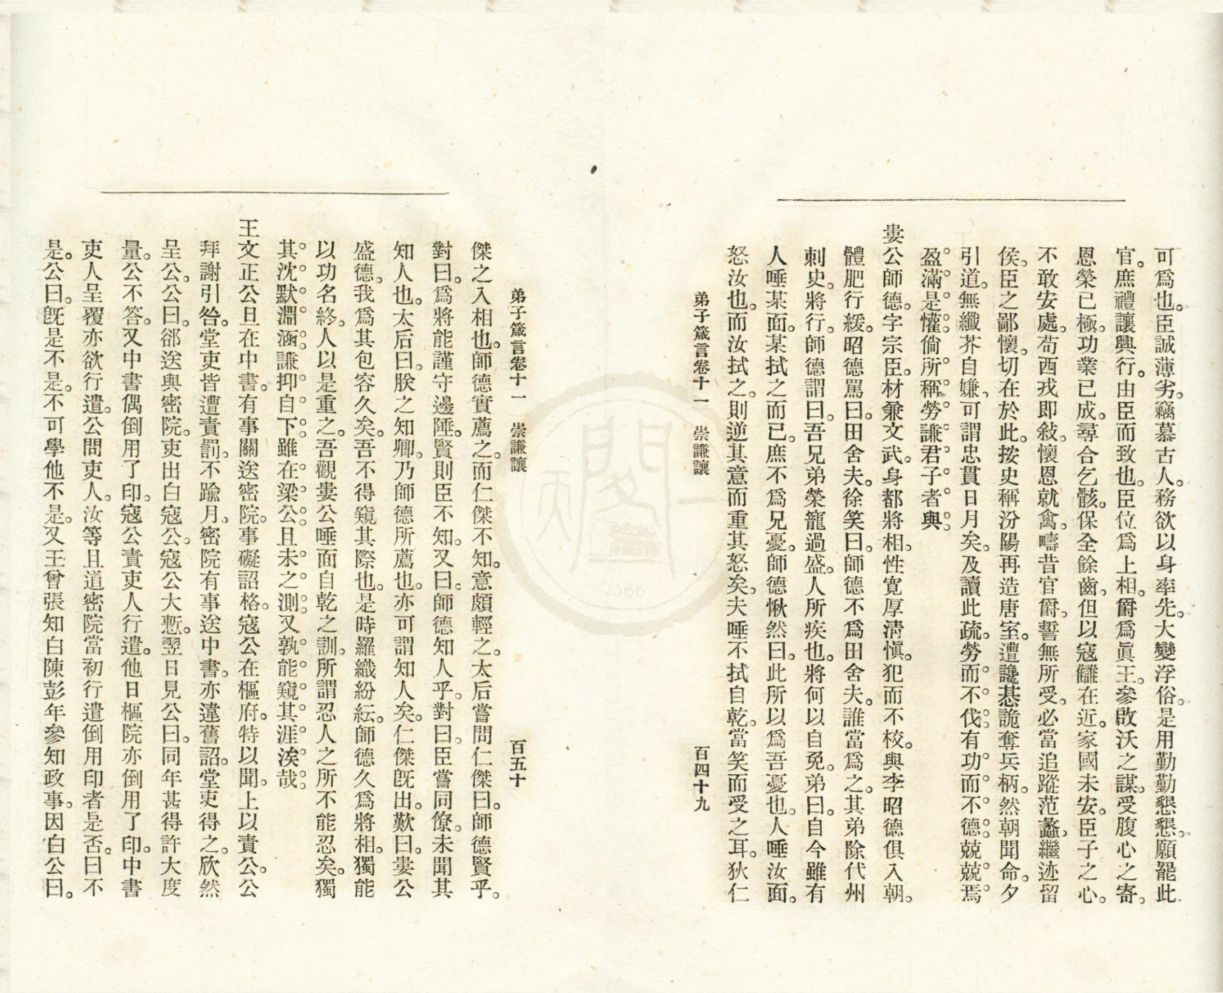 可爲也。臣誠薄劣。竊慕古人。務欲以身率先。大變浮俗。是用勤勤懇懇。願罷此
官。庶禮讓興行。由臣而致也。臣位爲上相。爵爲眞王。參啟沃之謀。受腹心之寄。
恩榮已極。功業已成。尋合乞骸。保全餘齒。但以寇讎在近。家國未安。臣子之心。
不敢安處。苟西戎即敍。懷恩就禽。疇昔官爵。誓無所受。必當追蹤范蠡。繼迹留
侯。臣之鄙懷。切在於此。按史稱汾陽再造唐室。遭讒惎詭奪兵柄。然朝聞命。夕
引道。無纖芥自嫌。可謂忠貫日月矣。及讀此疏。勞而不伐。有功而不德。兢兢焉
盈滿是懼。倘所稱勞謙君子者與。
婁公師德。字宗臣。材兼文武。身都將相。性寬厚清愼。犯而不校。與李昭德俱入朝。
體肥行緩。昭德罵曰。田舍夫。徐笑曰。師德不爲田舍夫。誰當爲之。其弟除代州
刺史。將行。師德謂曰。吾兄弟榮寵過盛。人所疾也。將何以自免。弟曰。自今雖有
人唾某面。某拭之而已。庶不爲兄憂。師德愀然曰。此所以爲吾憂也。人唾汝面。
怒汝也。而汝拭之。則逆其意而重其怒矣。夫唾不拭自乾。當笑而受之耳。狄仁
弟子箴言卷十一 崇謙讓
百四十九
弟子箴言卷十一 崇謙讓
百五十
傑之入相也。師德實薦之。而仁傑不知。意頗輕之。太后嘗問仁傑曰。師德賢乎。
對曰。爲將能謹守邊陲。賢則臣不知。又曰。師德知人乎。對曰。臣嘗同僚。未聞其
知人也。太后曰。朕之知卿。乃師德所薦也。亦可謂知人矣。仁傑旣出。歎曰。婁公
盛德。我爲其包容久矣。吾不得窺其際也。是時羅織紛紜。師德久爲將相。獨能
以功名終。人以是重之。吾觀婁公唾面自乾之訓。所謂忍人之所不能忍矣。獨
其沈默淵涵。謙抑自下。雖在梁公。且未之測。又孰能窺其涯涘哉。
王文正公旦在中書。有事關送密院。事礙詔格。寇公在樞府。特以聞。上以責公。公
拜謝引咎。堂吏皆遭責罰。不踰月。密院有事送中書。亦違舊詔。堂吏得之。欣然
呈公。公曰。郤送與密院。吏出白寇公。寇公大慙。翌日見公曰。同年甚得許大度
量。公不答。又中書偶倒用了印。寇公責吏人行遣。他日樞院亦倒用了印。中書
吏人呈覆。亦欲行遣。公問吏人。汝等且道密院當初行遣倒用印者是否。曰不
是。公曰。旣是不是。不可學他不是。又王曾張知白陳彭年參知政事。因白公曰。